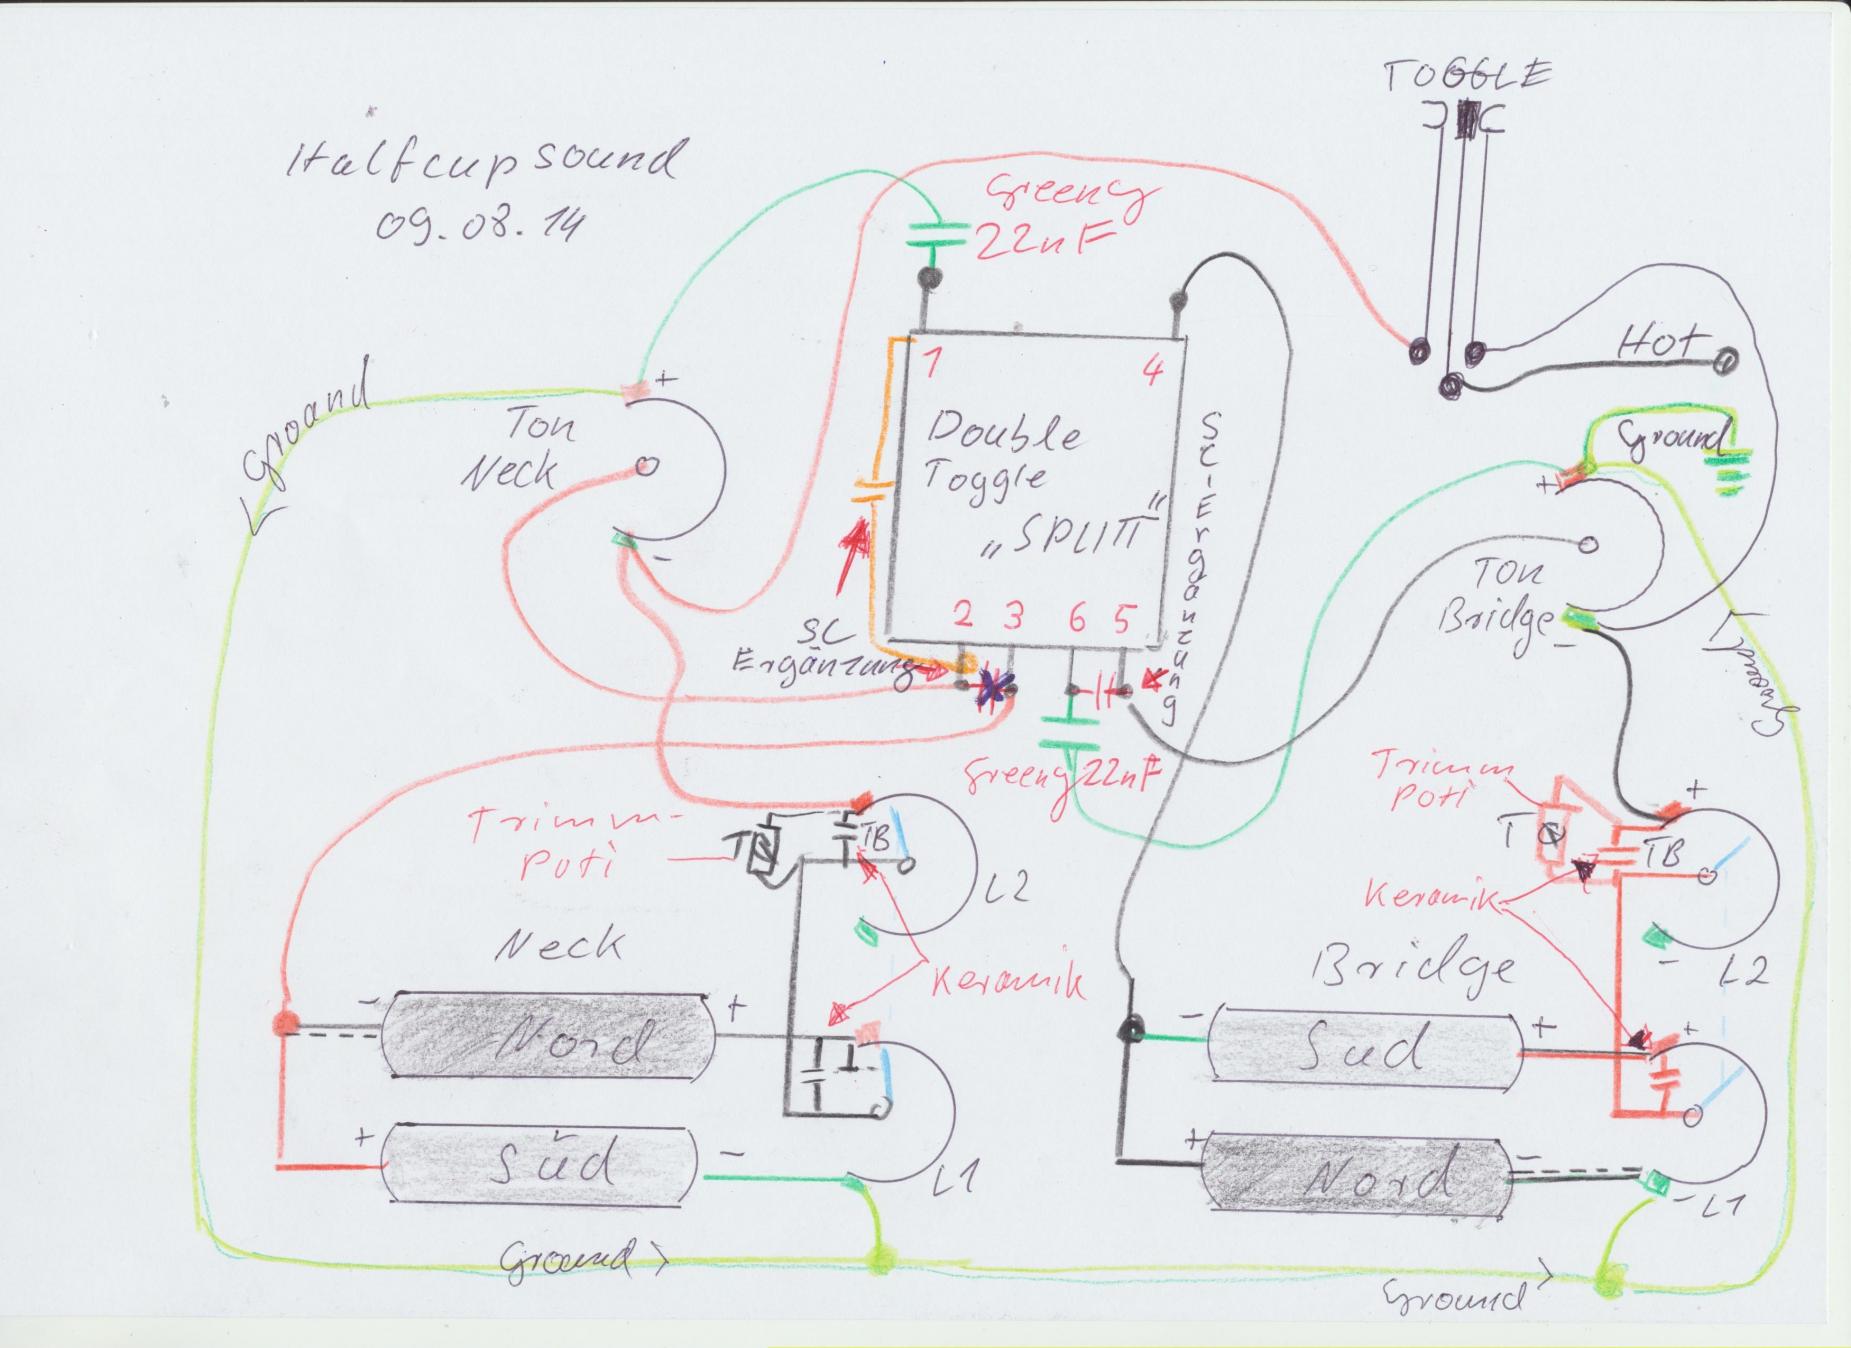 TOGGLE
Halfcupsound
09.08.14
Greeny
22nF
Hot
Ground
+
Ton
Neck
-
1
4
Double
Toggle
„SPLIT"
2 3 6 5
SC-Ergänzung
SC
Ergänzung
Ground
+
Ton
Bridge
-
Ground
Greeny 22nF
Trimm-
Poti
T
TB
L2
Neck
Keramik
Trimm
Poti
+
T
TB
Keramik
-
L2
Bridge
-
Nord
+
+
Süd
-
L1
-
Sud
+
+
+
Nord
-
-
L1
Ground >
Ground >